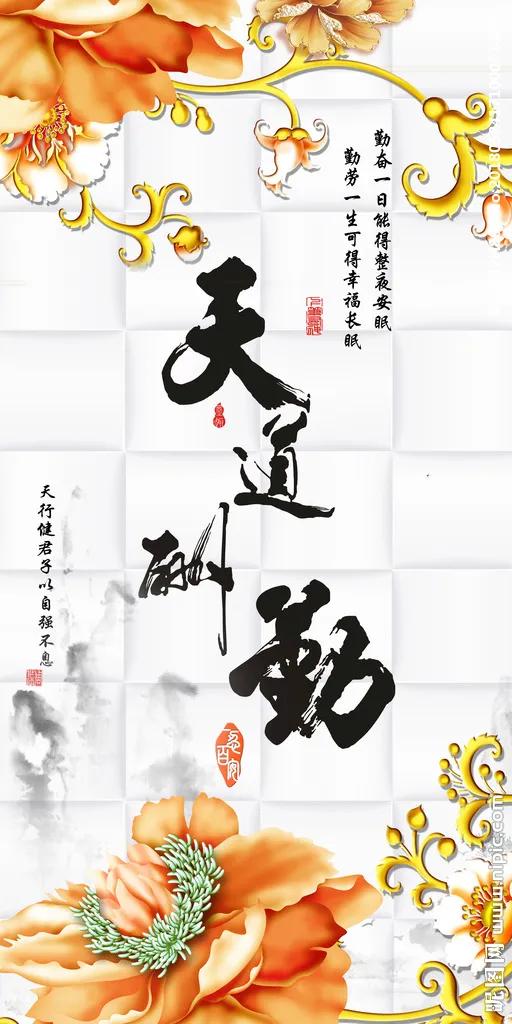 勤奋一日能得整夜安眠
勤劳一生可得幸福长眠
天道酬勤
天行健君子以自强不息
昵图网 www.nipic.com